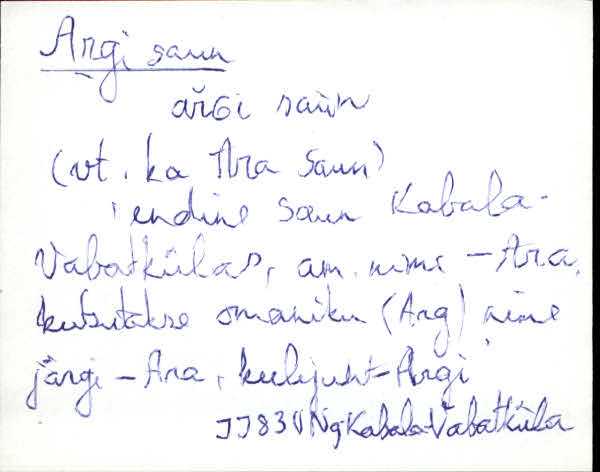 Argi saun
ar̆Gi saùn
(vt. ka Ara Saun)
endine saun Kabala-
Vabatkülas, am. nimi – Ara,
kutsutakse omaniku (Arg) nime
järgi – Ara, kulijuht – Argi
JJ83VNgKabala-Vabatküla